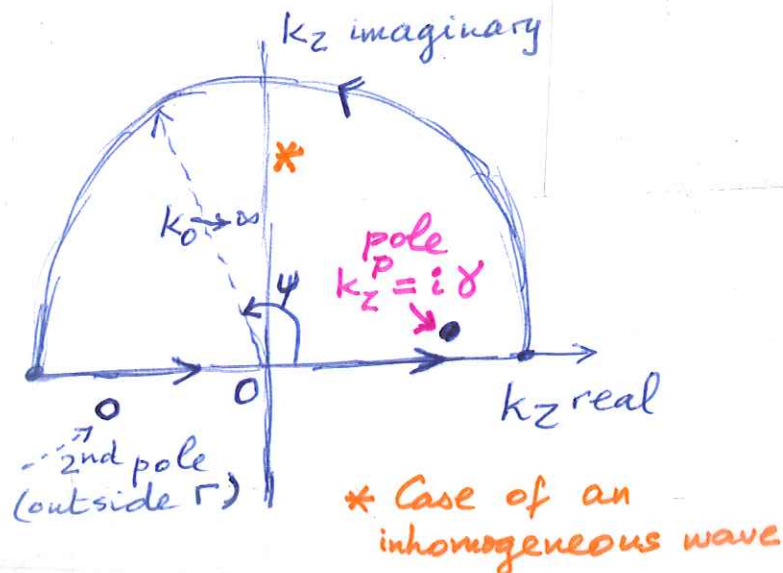 kz imaginary
*
k₀→∞
ψ
pole
kzᵖ = iγ
O
kz real
2nd pole
(outside Γ)
* Case of an
inhomogeneous wave